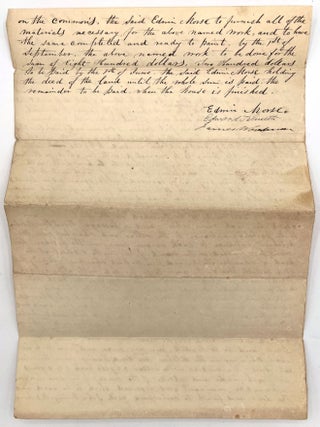 on the Commons. the Said Edwin Morse to furnish all of the
materials necessary, for the above named work, and to have
the same completed and ready to paint, by the 1st of
September. the above named work to be done for the
Sum of Eight Hundred dollars, Two Hundred dollars
to be paid by the 1st of June. the said Edwin Morse holding
the deed of the land until the whole sum is paid. the
remainder to be paid when the house is finished.
Edwin Morse
Edward
James